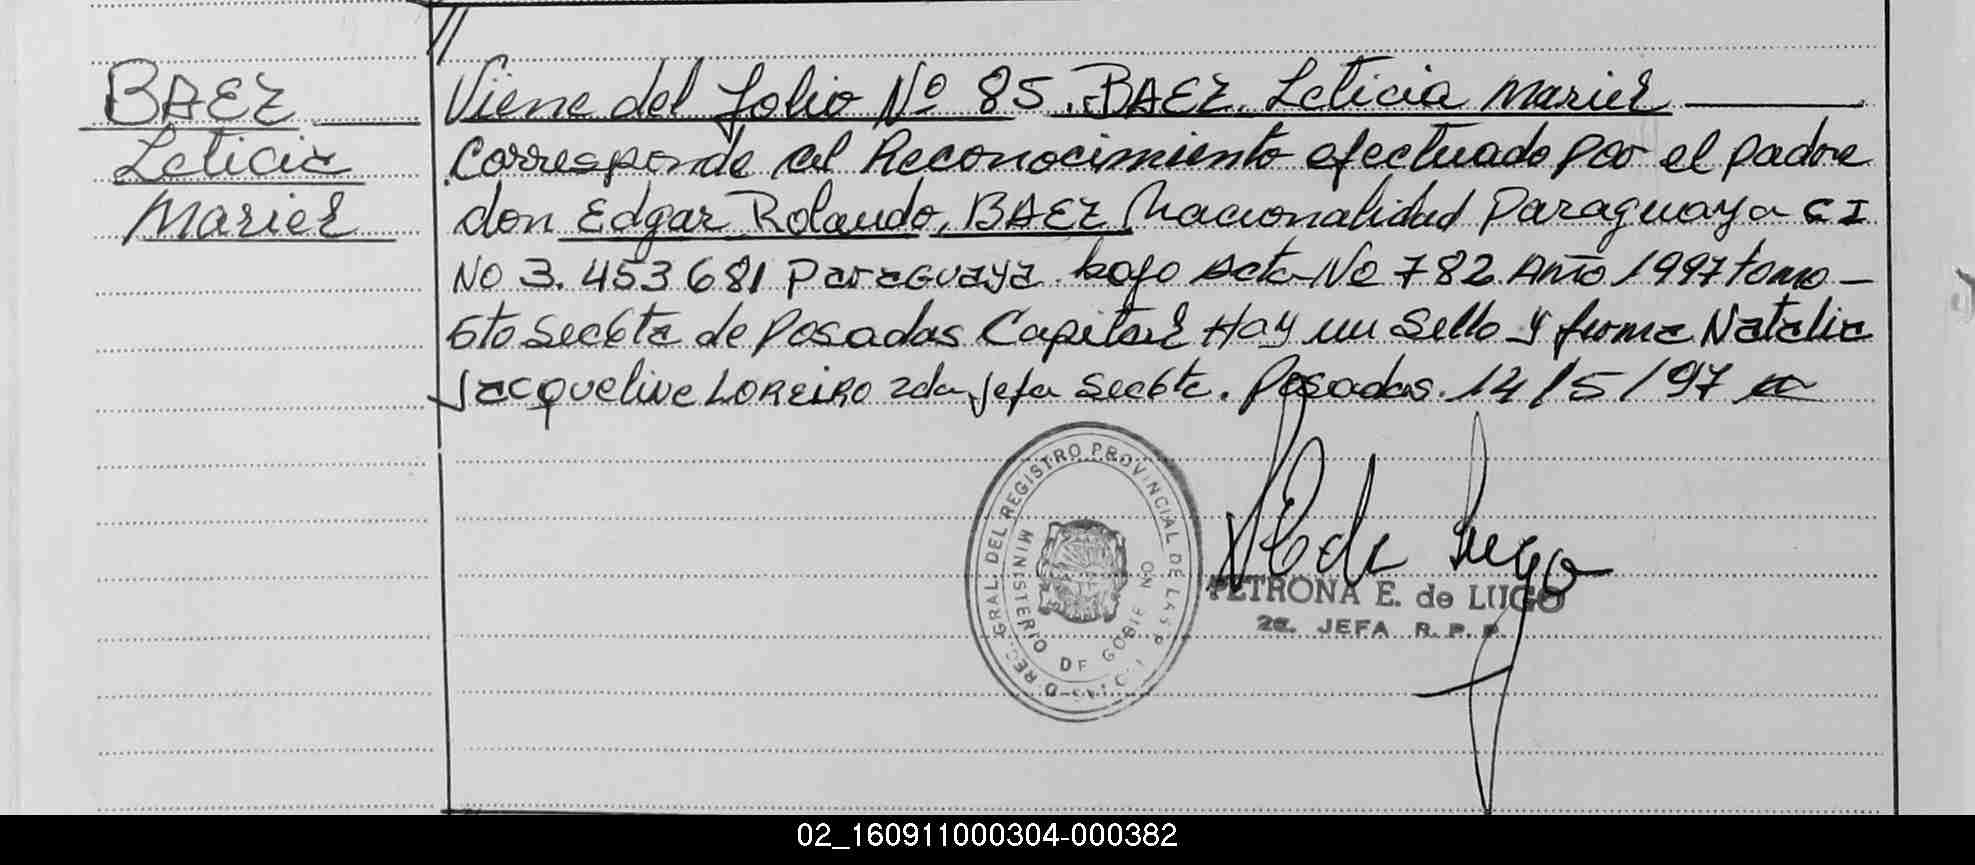 BAEZ
Leticia
Mariel
Viene del folio Nº 85. BAEZ. Leticia Mariel
Corresponde al Reconocimiento efectuado por el padre
don Edgar Rolando, BAEZ Nacionalidad Paraguaya CI
No 3.453681 Paraguaya bajo Acta No 782 Año 1997 tomo
6to Sec6ta de Posadas Capital Hay un Sello y firma Natalia
Jacqueline LOREIRO 2da Jefa Sec6ta. Posadas. 14/5/97
D REC. GRAL. DEL REGISTRO PROVINCIAL DE LAS P
MINISTERIO DE GOBIE NO
PETRONA E. de LUGO
2a. JEFA R. P. P.
02_160911000304-000382